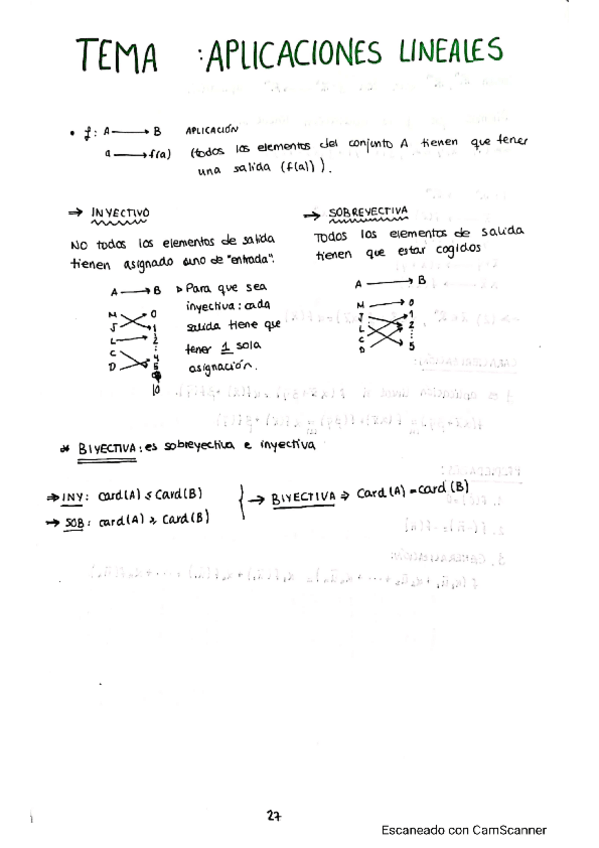 TEMA : APLICACIONES LINEALES
• f: A → B APLICACIÓN
a → f(a) (todos los elementos del conjunto A tienen que tener
una salida (f(a))).
→ INYECTIVO
NO todos los elementos de salida
tienen asignado uno de "entrada".
A → B ▹ Para que sea
inyectiva: cada
salida tiene que
tener 1 sola
asignación.
M 0
J 1
L 2
C ⋮ 4
D
10
→ SOBREYECTIVA
Todos los elementos de salida
tienen que estar cogidos
A → B
M 0
J 1
L 2
C ⋮
D 5
* BIYECTIVA: es sobreyectiva e inyectiva
→ INY: card(A) ≤ Card(B)
→ SOB: card(A) ≥ Card(B)
→ BIYECTIVA ⇒ Card(A) = card(B)
27
Escaneado con CamScanner